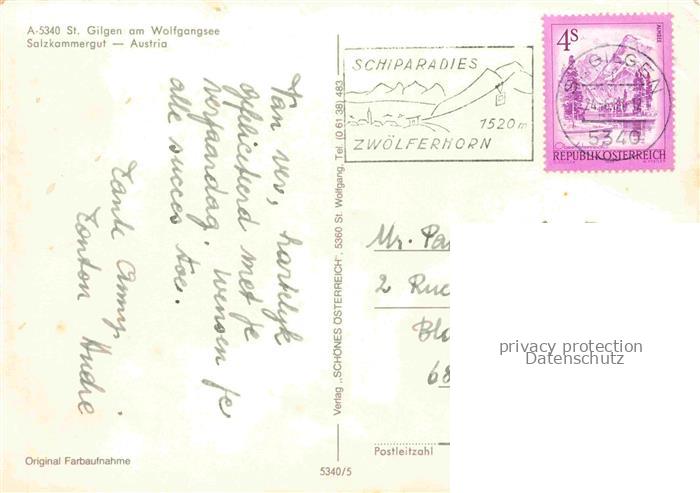 A-5340 St. Gilgen am Wolfgangsee
Salzkammergut — Austria
Van ver, hartelijk
gefeliciteerd met je
verjaardag. Wensen je
alle succes toe.
Tante Anny
Tonton André
Original Farbaufnahme
Verlag „SCHÖNES ÖSTERREICH", 5360 St. Wolfgang, Tel. (0 61 38) 483
5340/5
SCHIPARADIES
1520m
ZWÖLFERHORN
4S
ALMSEE
REPUBLIK ÖSTERREICH
ST. GILGEN
5340
Mr. Pa
2 Rue
Blo
68
privacy protection
Datenschutz
Postleitzahl